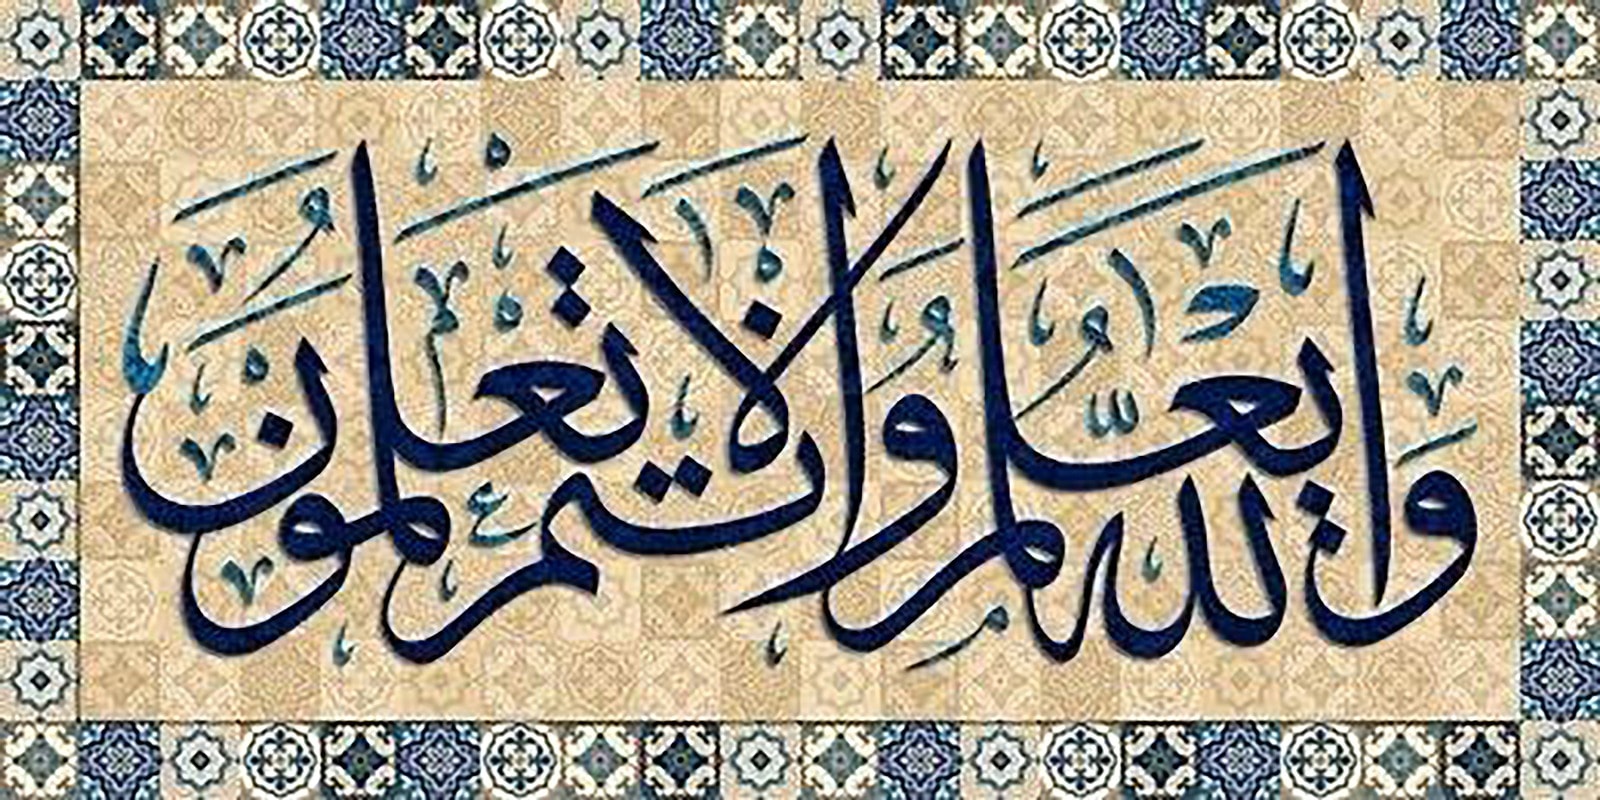 وَاللَّهُ يَعْلَمُ وَأَنْتُمْ لَا تَعْلَمُونَ